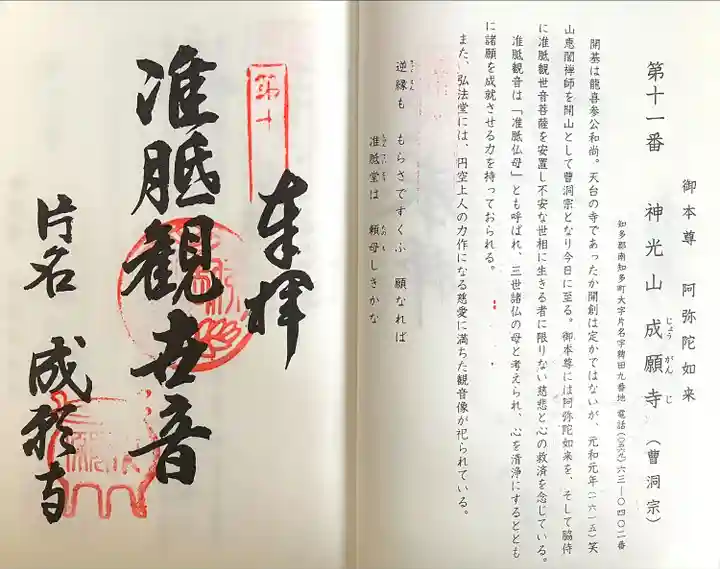 御本尊 阿弥陀如来
第十一番 神光山 成願寺（曹洞宗）
じょう がん じ
知多郡南知多町大字片名字稗田九番地 電話（〇五六九）六三―〇四〇二番
開基は龍喜参公和尚。天台の寺であったか開創は定かではないが、元和元年（一六一五）笑
山恵誾禅師を開山として曹洞宗となり今日に至る。御本尊には阿弥陀如来を、そして脇侍
に准胝観世音菩薩を安置し不安な世相に生きる者に限りない慈悲と心の救済を念じている。
准胝観音は「准胝仏母」とも呼ばれ、三世諸仏の母と考えられ、心を清浄にするととも
に諸願を成就させる力を持っておられる。
また、弘法堂には、円空上人の力作になる慈愛に満ちた観音像が祀られている。
逆縁も もらさですくふ 願なれば
准胝堂は 頼母しきかな
奉拝
第十
准胝観世音
片名 成願寺